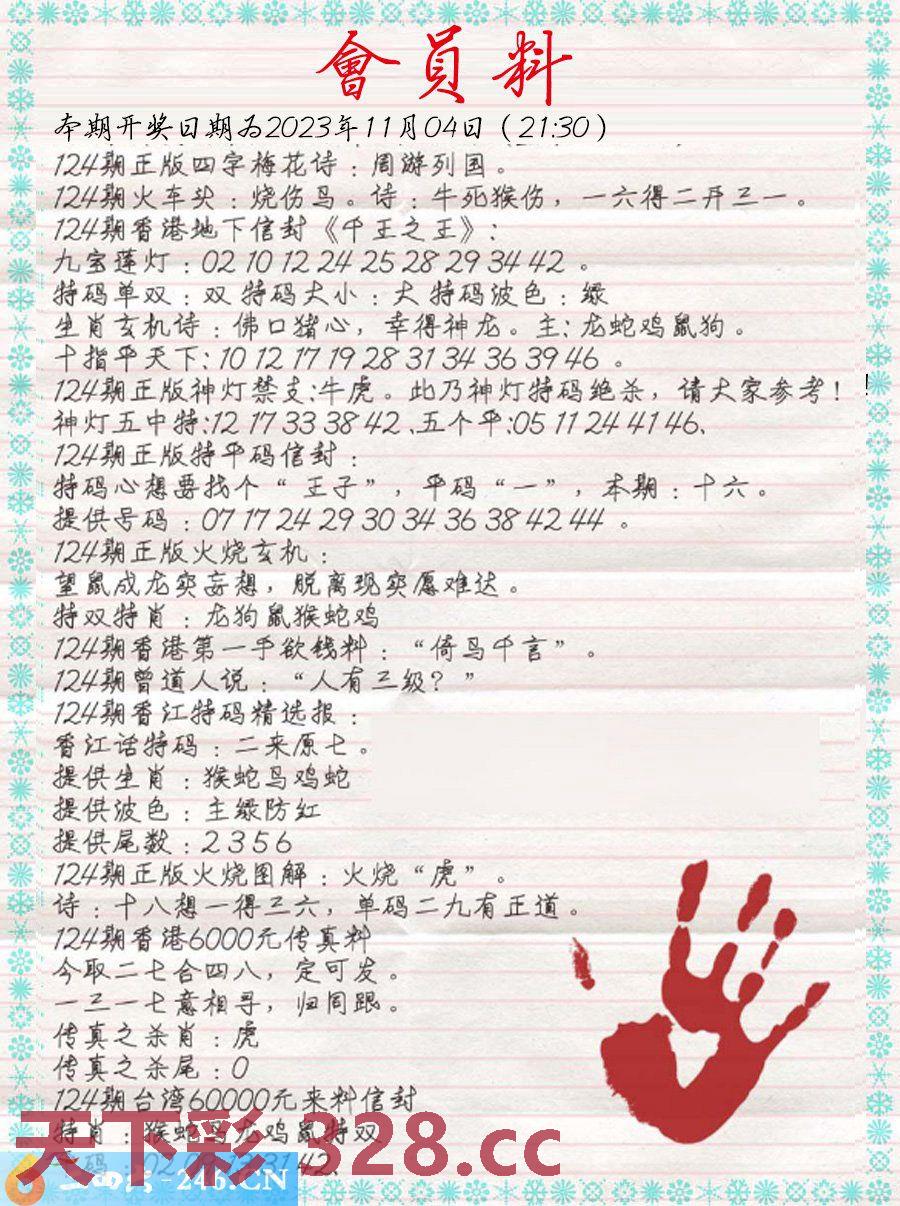 會員料
本期开奖日期为2023年11月04日（21:30）
124期正版四字梅花诗：周游列国。
124期火车头：烧伤鸟。诗：牛死猴伤，一六得二开三一。
124期香港地下信封《千王之王》：
九宝莲灯：02 10 12 24 25 28 29 34 42 。
特码单双：双 特码大小：大 特码波色：绿
生肖玄机诗：佛口猪心，幸得神龙。主：龙蛇鸡鼠狗。
十指平天下：10 12 17 19 28 31 34 36 39 46 。
124期正版神灯禁支:牛虎。此乃神灯特码绝杀，请大家参考！！
神灯五中特:12 17 33 38 42 、五个平:05 11 24 41 46、
124期正版特平码信封：
特码心想要找个“ 王子”，平码“一”，本期：十六。
提供号码：07 17 24 29 30 34 36 38 42 44 。
124期正版火烧玄机：
望鼠成龙实妄想，脱离现实愿难达。
特双特肖：龙狗鼠猴蛇鸡
124期香港第一手欲钱料：“倚马千言”。
124期曾道人说：“人有三级？”
124期香江特码精选报：
香江话特码：二来原七。
提供生肖：猴蛇马鸡蛇
提供波色：主绿防红
提供尾数：2 3 5 6
124期正版火烧图解：火烧“虎”。
诗：十八想一得三六，单码二九有正道。
124期香港6000元传真料
今取二七合四八，定可发。
一三一七意相寻，归同跟。
传真之杀肖：虎
传真之杀尾：0
124期台湾60000元来料信封
特肖：猴蛇马龙鸡鼠特双
42、
天下彩 328.cc
-246.CN